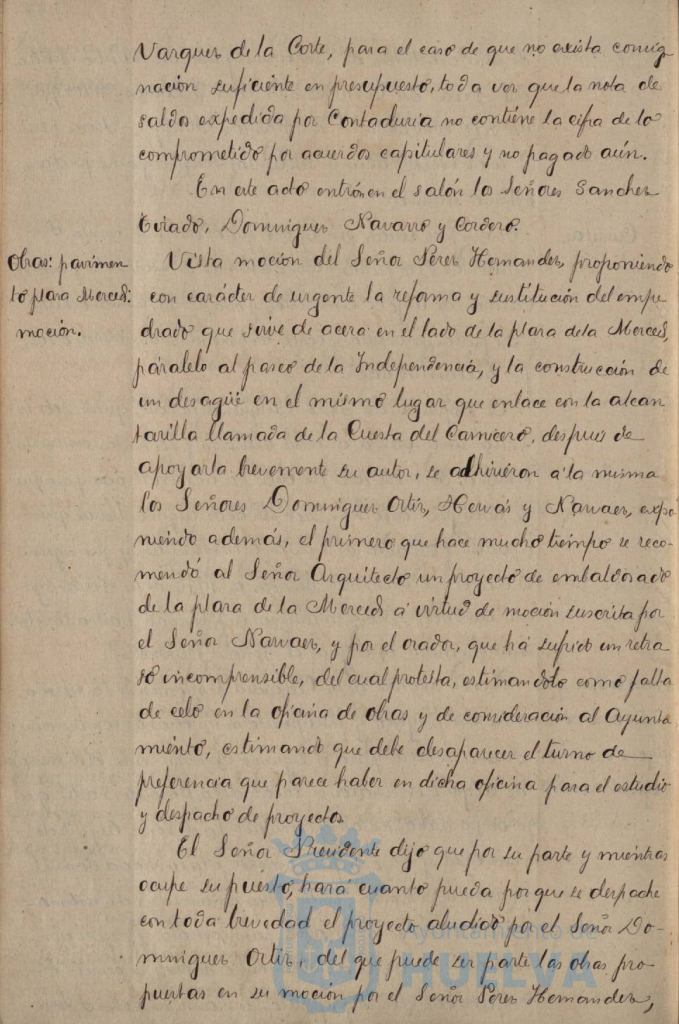 Varquez de la Corte, para el caso de que no exista consig
nación suficiente en presupuesto, toda vez que la nota de
saldos expedida por Contaduria no contiene la cifra de lo
comprometido por acuerdos capitulares y no pagado aún.
En este acto entrós en el salón los Señores Sanchez
Tirado, Dominguez Navarro y Cordero.
Obras: pavimen
to plaza Merced:
moción.
Vista moción del Señor Perez Hernandez, proponiendo
con carácter de urgente la reforma y sustitución del empe
drado que sirve de acera en el lado de la plaza de la Merced,
páralelo al paseo de la Independencia, y la construcción de
un desagüe en el mismo lugar que enlace con la alcan
tarilla llamada de la Cuesta del Carnicero, despues de
apoyarla brevemente su autor, se adhirieron á la misma
los Señores Dominguez Ortiz, Hervás y Narvaez, expo
niendo además, el primero que hace mucho tiempo se reco-
mendó al Señor Arquitecto un proyecto de embaldosado
de la plaza de la Merced á virtud de moción suscrita por
el Señor Narvaez, y por el orador, que há sufrido un retra
so incomprensible, del cual protesta, estimandolo como falta
de celo en la oficina de obras y de consideración al Ayunta
miento, estimando que debe desaparecer el turno de
preferencia que parece haber en dicha oficina para el estudio
y despacho de proyectos.
El Señor Presidente dijo que por su parte y mientras
ocupe su puesto, hará cuanto pueda por que se despache
con toda brevedad el proyecto aludido por el Señor Do-
minguez Ortiz, del que puede ser parte las obras pro
puestas en su moción por el Señor Perez Hernandez,
Ayuntamiento de
HUELVA